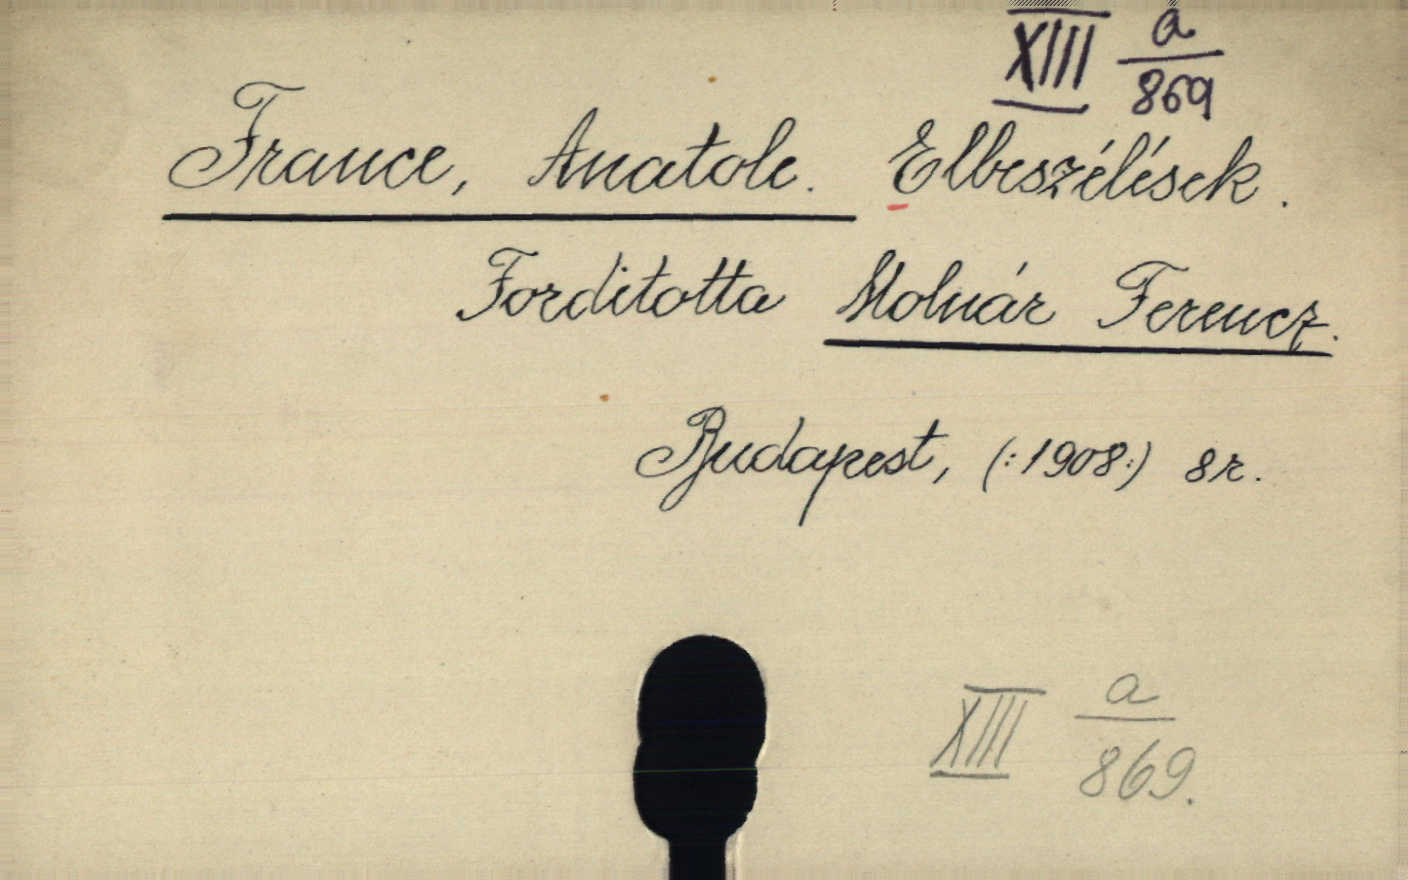 XIII a/869
France, Anatole. Elbeszélések.
Fordította Molnár Ferencz.
Budapest, (:1908:) 8r.
XIII a/869.